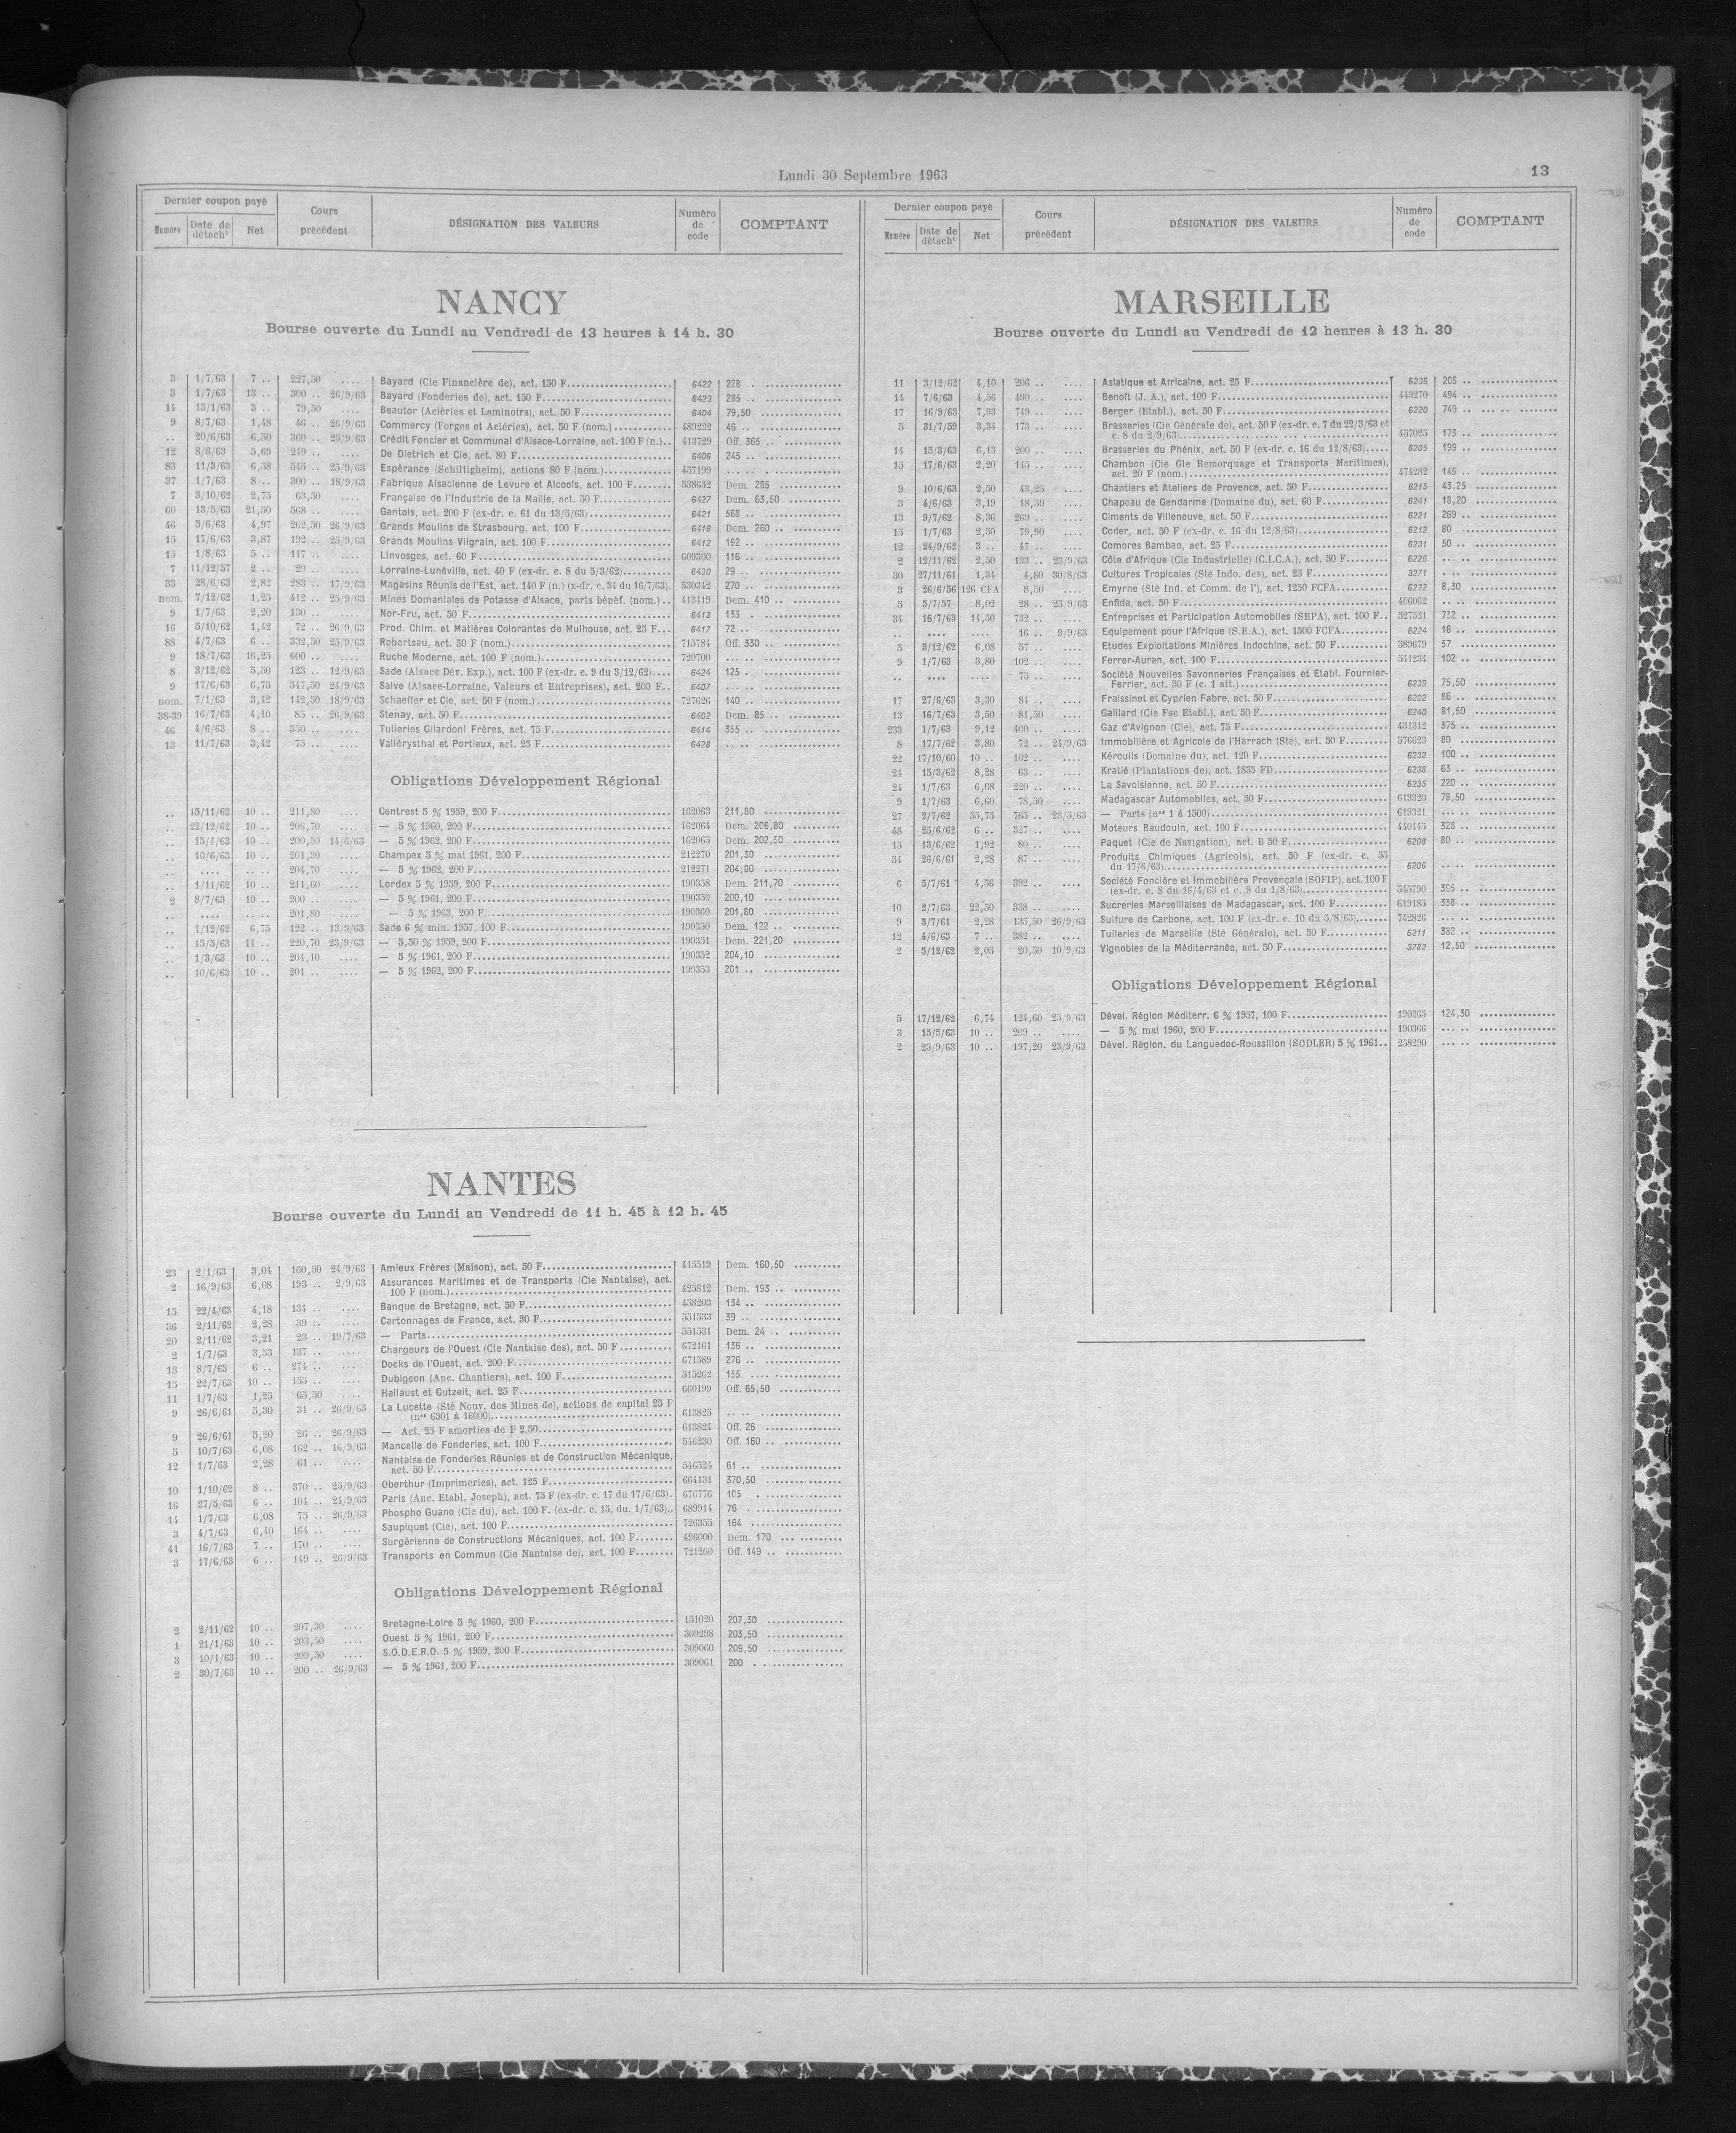 Lundi 30 Septembre 1963
13
Dernier coupon payé
Cours précédent
DÉSIGNATION DES VALEURS
Numéro de code
COMPTANT
Numéro
Date de détacht
Net
NANCY
Bourse ouverte du Lundi au Vendredi de 13 heures à 14 h. 30
3 1/7/63 7 .. 227,50 .... Bayard (Cie Financière de), act. 150 F 6422 228 ..
3 1/7/63 13 .. 300 .. 26/9/63 Bayard (Fonderies de), act. 150 F 6423 285 ..
14 15/1/63 3 .. 79,50 .... Beautor (Aciéries et Laminoirs), act. 50 F 6404 79,50
9 8/7/63 1,48 46 .. 26/9/63 Commercy (Forges et Aciéries), act. 50 F (nom.) 489222 46 ..
.. 20/6/63 6,50 360 .. 25/9/63 Crédit Foncier et Communal d'Alsace-Lorraine, act. 100 F (n.) 413729 Off. 365 ..
12 8/8/63 5,69 249 .. .... De Dietrich et Cie, act. 80 F 6406 245 ..
83 11/3/63 6,58 545 .. 25/9/63 Espérance (Schiltigheim), actions 80 F (nom.) 457199 .... ..
37 1/7/63 8 .. 300 .. 18/9/63 Fabrique Alsacienne de Levure et Alcools, act. 100 F 538652 Dem. 285
7 3/10/62 2,75 63,50 .... Française de l'Industrie de la Maille, act. 50 F 6427 Dem. 63,50
60 13/5/63 21,50 568 .. .... Gantois, act. 200 F (ex-dr. c. 61 du 13/5/63) 6421 568 ..
46 5/6/63 4,97 262,50 26/9/63 Grands Moulins de Strasbourg, act. 100 F 6418 Dem. 260 ..
15 17/6/63 3,87 192 .. 25/9/63 Grands Moulins Vilgrain, act. 100 F 6412 192 ..
15 1/8/63 5 .. 117 .. .... Linvosges, act. 60 F 609300 116 ..
7 11/12/57 2 .. 29 .. .... Lorraine-Lunéville, act. 40 F (ex-dr. c. 8 du 5/3/62) 6430 29 ..
33 28/6/63 2,82 283 .. 17/9/63 Magasins Réunis de l'Est, act. 140 F (n.) (x-dr. c. 34 du 16/7/63) 530342 270 ..
nom. 7/12/62 1,25 412 .. 25/9/63 Mines Domaniales de Potasse d'Alsace, parts bénéf. (nom.) 413419 Dem. 410 ..
9 1/7/63 2,20 130 .. .... Nor-Fru, act. 50 F 6413 133 .
16 5/10/62 1,42 72 .. 26/9/63 Prod. Chim. et Matières Colorantes de Mulhouse, act. 25 F 6417 72 ..
88 4/7/63 6 .. 332,50 25/9/63 Robertsau, act. 50 F (nom.) 715784 Off. 330 ..
9 18/7/63 16,25 600 .. .... Ruche Moderne, act. 100 F (nom.) 720700 .... ..
8 3/12/62 5,50 123 .. 12/9/63 Sade (Alsace Dév. Exp.), act. 100 F (ex-dr. c. 9 du 3/12/62) 6424 125 .
9 17/6/63 6,75 547,50 24/9/63 Salve (Alsace-Lorraine, Valeurs et Entreprises), act. 200 F 6407 .... ..
nom. 7/1/63 3,42 142,50 18/9/63 Schaeffer et Cie, act. 50 F (nom.) 727626 140 ..
38-39 16/7/63 4,10 85 .. 26/9/63 Stenay, act. 50 F 6402 Dem. 85 ..
46 4/6/63 8 .. 350 .. .... Tuileries Gilardoni Frères, act. 75 F 6414 355 ..
13 11/7/63 3,42 75 .. .... Vallérysthal et Portieux, act. 25 F 6428 .... ..
Obligations Développement Régional
.. 15/11/62 10 .. 211,80 .... Centrest 5 % 1959, 200 F 162063 211,80
.. 22/12/62 10 .. 206,70 .... — 5 % 1960, 200 F 162064 Dem. 206,80
.. 15/4/63 10 .. 200,50 14/6/63 — 5 % 1962, 200 F 162065 Dem. 202,50
.. 10/6/63 10 .. 201,30 .... Champex 5 % mai 1961, 200 F 212270 201,30
.. .... .. .. 204,70 .... — 5 % 1962, 200 F 212271 204,80
.. 1/11/62 10 .. 211,60 .... Lordex 5 % 1959, 200 F 190358 Dem. 211,70
2 8/7/63 10 .. 200 .. .... — 5 % 1961, 200 F 190359 200,10
.. .... .. .. 201,80 .... — 5 % 1963, 200 F 190360 201,80
.. 1/12/62 6,75 122 .. 13/9/63 Sade 6 % min. 1957, 100 F 190350 Dem. 122 ..
.. 15/5/63 11 .. 220,70 23/9/63 — 5,50 % 1959, 200 F 190351 Dem. 221,20
.. 1/3/63 10 .. 204,10 .... — 5 % 1961, 200 F 190352 204,10
.. 10/6/63 10 .. 201 .. .... — 5 % 1962, 200 F 190353 201 ..
NANTES
Bourse ouverte du Lundi au Vendredi de 11 h. 45 à 12 h. 45
23 2/1/63 3,04 160,50 24/9/63 Amieux Frères (Maison), act. 50 F 415519 Dem. 160,50
2 16/9/63 6,08 193 .. 2/9/63 Assurances Maritimes et de Transports (Cie Nantaise), act.
100 F (nom.) 425812 Dem. 193 ..
15 22/4/63 4,18 134 .. .... Banque de Bretagne, act. 50 F 458203 134 ..
36 2/11/62 2,28 39 .. .... Cartonnages de France, act. 30 F 551533 39 ..
20 2/11/62 3,21 23 .. 19/7/63 — Parts 551531 Dem. 24 ..
2 1/7/63 3,53 137 .. .... Chargeurs de l'Ouest (Cie Nantaise des), act. 50 F 672161 136 ..
13 8/7/63 6 .. 274 .. .... Docks de l'Ouest, act. 200 F 671589 276 ..
15 22/7/63 10 .. 155 .. .... Dubigeon (Anc. Chantiers), act. 100 F 515262 155
11 1/7/63 1,25 65,50 .... Hallaust et Gutzeit, act. 25 F 660199 Off. 65,50
9 26/6/61 5,30 31 .. 26/9/63 La Lucette (Sté Nouv. des Mines de), actions de capital 25 F
(nos 6301 à 16000) 613825 .. ..
9 26/6/61 5,20 26 .. 26/9/63 — Act. 25 F amorties de F 2,50 613824 Off. 26
5 10/7/63 6,08 162 .. 16/9/63 Mancelle de Fonderies, act. 100 F 546230 Off. 160 ..
12 1/7/63 2,28 61 .. .... Nantaise de Fonderies Réunies et de Construction Mécanique,
act. 50 F 546524 61 ..
10 1/10/62 8 .. 370 .. 25/9/63 Oberthur (Imprimeries), act. 125 F 664131 370,50
16 27/5/63 6 .. 104 .. 24/9/63 Paris (Anc. Etabl. Joseph), act. 75 F (ex-dr. c. 17 du 17/6/63) 676776 105 .
14 1/7/63 6,08 75 .. 26/9/63 Phospho Guano (Cie du), act. 100 F. (ex-dr. c. 15, du. 1/7/63) 689914 76 .
3 4/7/63 6,40 164 .. .... Saupiquet (Cie), act. 100 F 726355 164
41 16/7/63 7 .. 170 .. .... Surgérienne de Constructions Mécaniques, act. 100 F 496000 Dem. 170
3 17/6/63 6 .. 149 .. 26/9/63 Transports en Commun (Cie Nantaise de), act. 100 F 721260 Off. 149 ..
Obligations Développement Régional
2 2/11/62 10 .. 207,30 .... Bretagne-Loire 5 % 1960, 200 F 151020 207,30
1 21/1/63 10 .. 203,50 .... Ouest 5 % 1961, 200 F 309298 203,50
3 10/1/63 10 .. 209,50 .... S.O.D.E.R.O. 5 % 1959, 200 F 309060 209,50
2 30/7/63 10 .. 200 .. 26/9/63 — 5 % 1961, 200 F 309061 200 .
Dernier coupon payé
Cours précédent
DÉSIGNATION DES VALEURS
Numéro de code
COMPTANT
Numéro
Date de détacht
Net
MARSEILLE
Bourse ouverte du Lundi au Vendredi de 12 heures à 13 h. 30
11 3/12/62 4,10 206 .. .... Asiatique et Africaine, act. 25 F 6236 205 ..
14 7/6/63 4,56 490 .. .... Benoît (J. A.), act. 100 F 443270 494 ..
17 16/9/63 7,93 749 .. .... Berger (Etabl.), act. 50 F 6220 749 ..
5 31/7/59 3,34 173 .. .... Brasseries (Cie Générale de), act. 50 F (ex-dr. c. 7 du 22/3/63 et
c. 8 du 2/9/63) 457025 173 ..
14 15/3/63 6,13 200 .. .... Brasseries du Phénix, act. 50 F (ex-dr. c. 16 du 12/8/63) 6205 199 ..
15 17/6/63 2,20 145 .. .... Chambon (Cie Gle Remorquage et Transports Maritimes),
act. 20 F (nom.) 474282 145 ..
9 10/6/63 2,50 43,25 .... Chantiers et Ateliers de Provence, act. 50 F 6215 43,25
3 4/6/63 3,19 18,50 .... Chapeau de Gendarme (Domaine du), act. 60 F 6241 18,20
13 9/7/62 8,36 269 .. .... Ciments de Villeneuve, act. 50 F 6221 269 ..
15 1/7/63 2,50 79,90 .... Coder, act. 50 F (ex-dr. c. 16 du 12/8/63) 6212 80
12 24/9/62 3 .. 47 .. .... Comores Bambao, act. 25 F 6231 50 ..
2 12/11/62 2,50 133 .. 23/9/63 Côte d'Afrique (Cie Industrielle) (C.I.C.A.), act. 50 F 6226 .. ..
30 27/11/61 1,34 4,80 30/8/63 Cultures Tropicales (Sté Indo. des), act. 25 F 3271 .. ..
3 26/6/56 126 CFA 8,50 .... Emyrne (Sté Ind. et Comm. de l'), act. 1250 FCFA 6222 8,30
5 5/7/57 8,02 28 .. 25/9/63 Enfida, act. 50 F 406062 .. ..
34 16/7/63 14,50 732 .. .... Entreprises et Participation Automobiles (SEPA), act. 100 F 527521 732 ..
.. .... .... 16 .. 9/9/63 Equipement pour l'Afrique (S.E.A.), act. 1500 FCFA 6224 16 ..
5 3/12/62 6,08 57 .. .... Etudes Exploitations Minières Indochine, act. 50 F 389679 57
9 1/7/63 3,80 102 .. .... Ferrer-Auran, act. 100 F 541234 102 ..
.. .... .... 75 .. .... Société Nouvelles Savonneries Françaises et Etabl. Fournier-
Ferrier, act. 50 F (c. 1 att.) 6239 75,50
17 27/6/63 3,30 84 .. .... Fraissinet et Cyprien Fabre, act. 50 F 6202 86 ..
13 16/7/63 3,50 81,50 .... Gaillard (Cie Fse Etabl.), act. 50 F 6240 81,50
233 1/7/63 9,12 400 .. .... Gaz d'Avignon (Cie), act. 75 F 431312 375 ..
8 17/7/62 3,80 72 .. 24/9/63 Immobilière et Agricole de l'Harrach (Sté), act. 50 F 576623 80
22 17/10/60 10 .. 102 .. .... Kéroulis (Domaine du), act. 120 F 6232 100 ..
24 15/3/62 8,28 63 .. .... Kratié (Plantations de), act. 1835 FD 6238 63 ..
24 1/7/63 6,08 220 .. .... La Savoisienne, act. 50 F 6235 220 ..
9 1/7/63 6,60 78,50 .... Madagascar Automobiles, act. 50 F 619320 78,50
27 2/7/62 55,75 765 .. 28/5/63 — Parts (nos 1 à 1500) 619321 ... ..
48 25/6/62 6 .. 327 .. .... Moteurs Baudouin, act. 100 F 440445 328 ..
15 13/6/62 1,92 80 .. .... Paquet (Cie de Navigation), act. B 50 F 6208 80 ..
54 26/6/61 2,28 87 .. .... Produits Chimiques (Agricola), act. 50 F (ex-dr. c. 55
du 17/6/63) 6206 ... ..
6 5/7/61 4,56 392 .. .... Société Foncière et Immobilière Provençale (SOFIP), act. 100 F
(ex-dr. c. 8 du 16/4/63 et c. 9 du 1/8/63) 545790 395 ..
10 2/7/63 22,50 338 .. .... Sucreries Marseillaises de Madagascar, act. 100 F 619185 338 ..
9 3/7/61 2,28 135,50 26/9/63 Sulfure de Carbone, act. 100 F (ex-dr. c. 10 du 5/8/63) 742826 ... ..
12 4/6/63 7 .. 382 .. .... Tuileries de Marseille (Sté Générale), act. 50 F 6211 382 ..
2 5/12/62 2,05 20,50 10/9/63 Vignobles de la Méditerranée, act. 50 F 3782 12,50
Obligations Développement Régional
5 17/12/62 6,74 124,60 25/9/63 Dével. Région Méditerr. 6 % 1957, 100 F 190365 124,30
3 15/5/63 10 .. 209 .. .... — 5 % mai 1960, 200 F 190366 ... ..
2 23/9/63 10 .. 197,20 23/9/63 Dével. Région. du Languedoc-Roussillon (SODLER) 5 % 1961 258290 ... ..